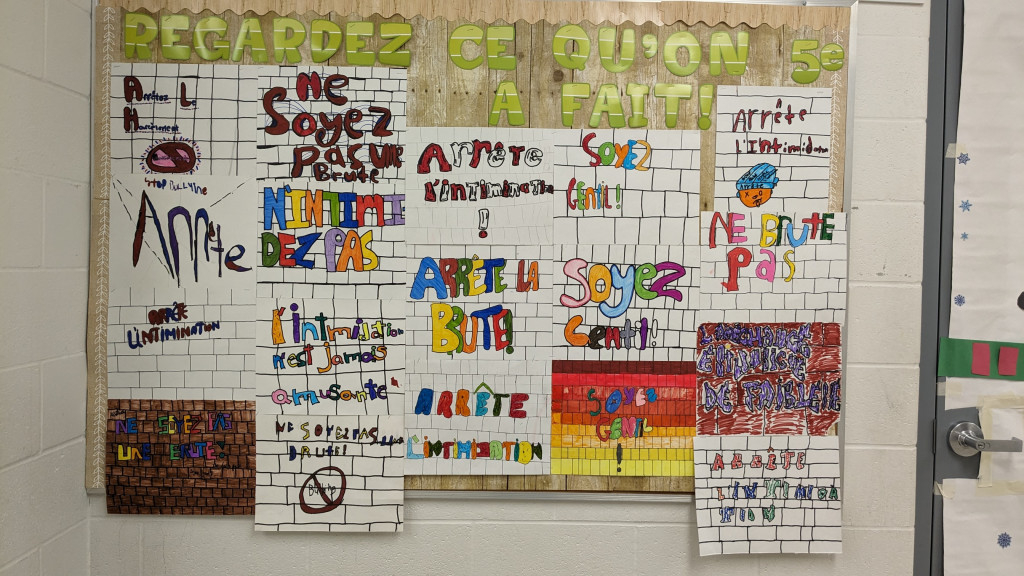 REGARDEZ CE QU'ON 5e
A FAIT!
Arrêtez Le
Harcèlement
Arrête
ARRÊTE
L'INTIMINATION
NE SOYEZ PAS
UNE BRUTE!
NE
Soyez
PAS UNE
Brute
N'INTIMI
DEZ PAS
l'intimidation
n'est jamais
amusante
NE SOYEZ PAS
BRUTE!
Arrête
L'INTIMINATION
!!
ARRÊTE LA
BRUTE!
ARRÊTE
L'INTIMIDATION
SOYEZ
GENTIL!
SOYEZ
Gentil!
SOYEZ
GENTIL
!
Arrête
L'Intimidation
NE BRUTE
PAS
DE FAIBLESSE
ARRÊTE
L'INTIMIDA
TION